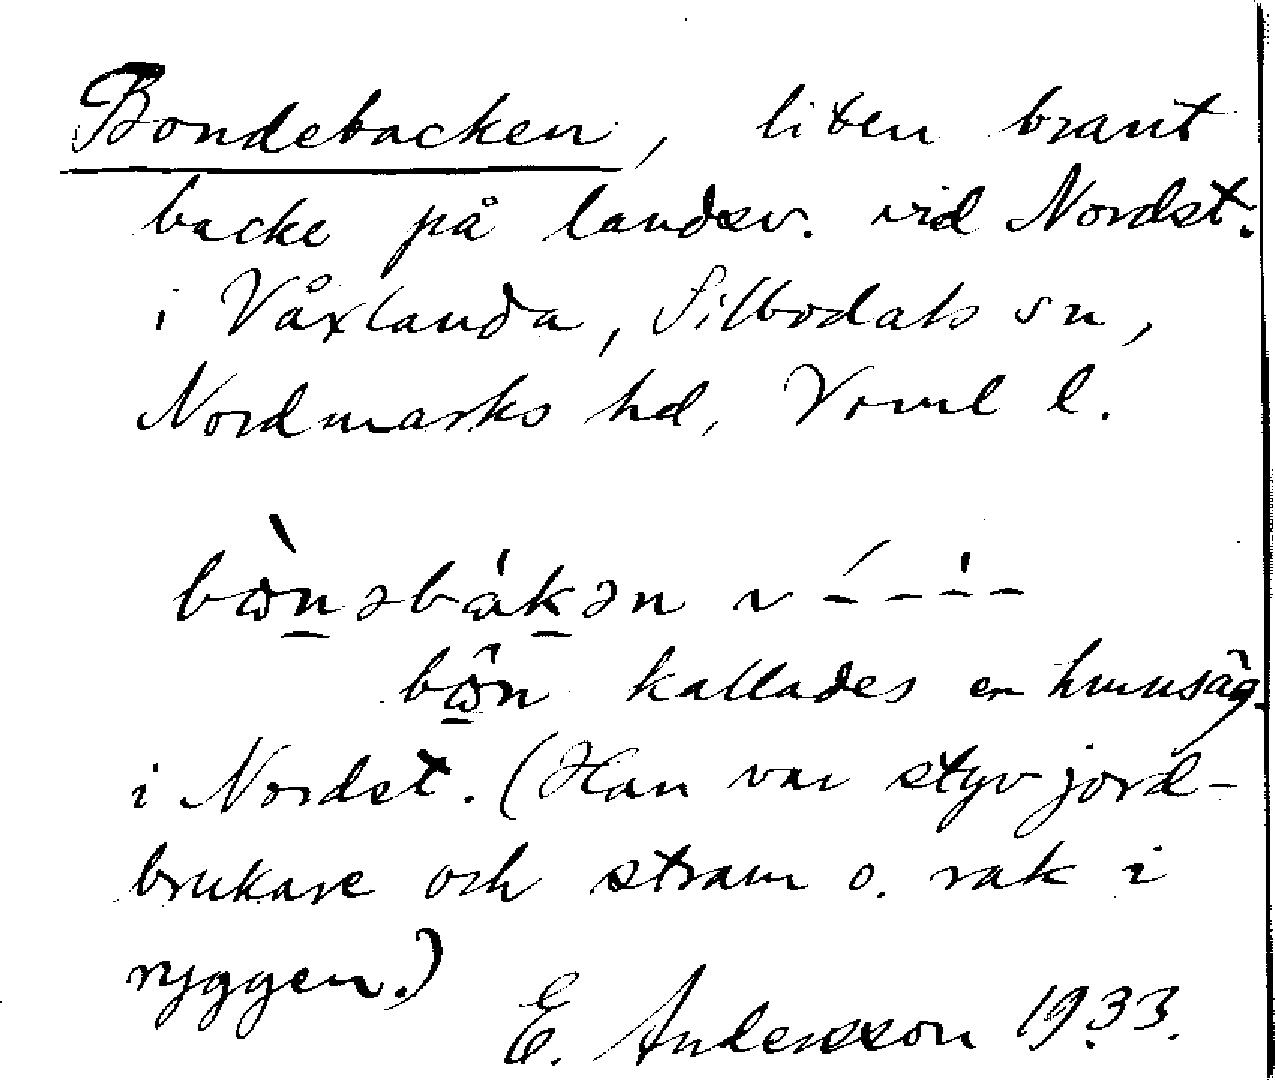 Bondebacken, liten brant
backe på landsv. vid Nordst.
i Våxlanda, Silbodals sn,
Nordmarks hd, Vrml l.
kallades en husäg.
i Nordst. (Han var styv jord-
brukare och stram o. rak i
ryggen.)
E. Andersson 1933.